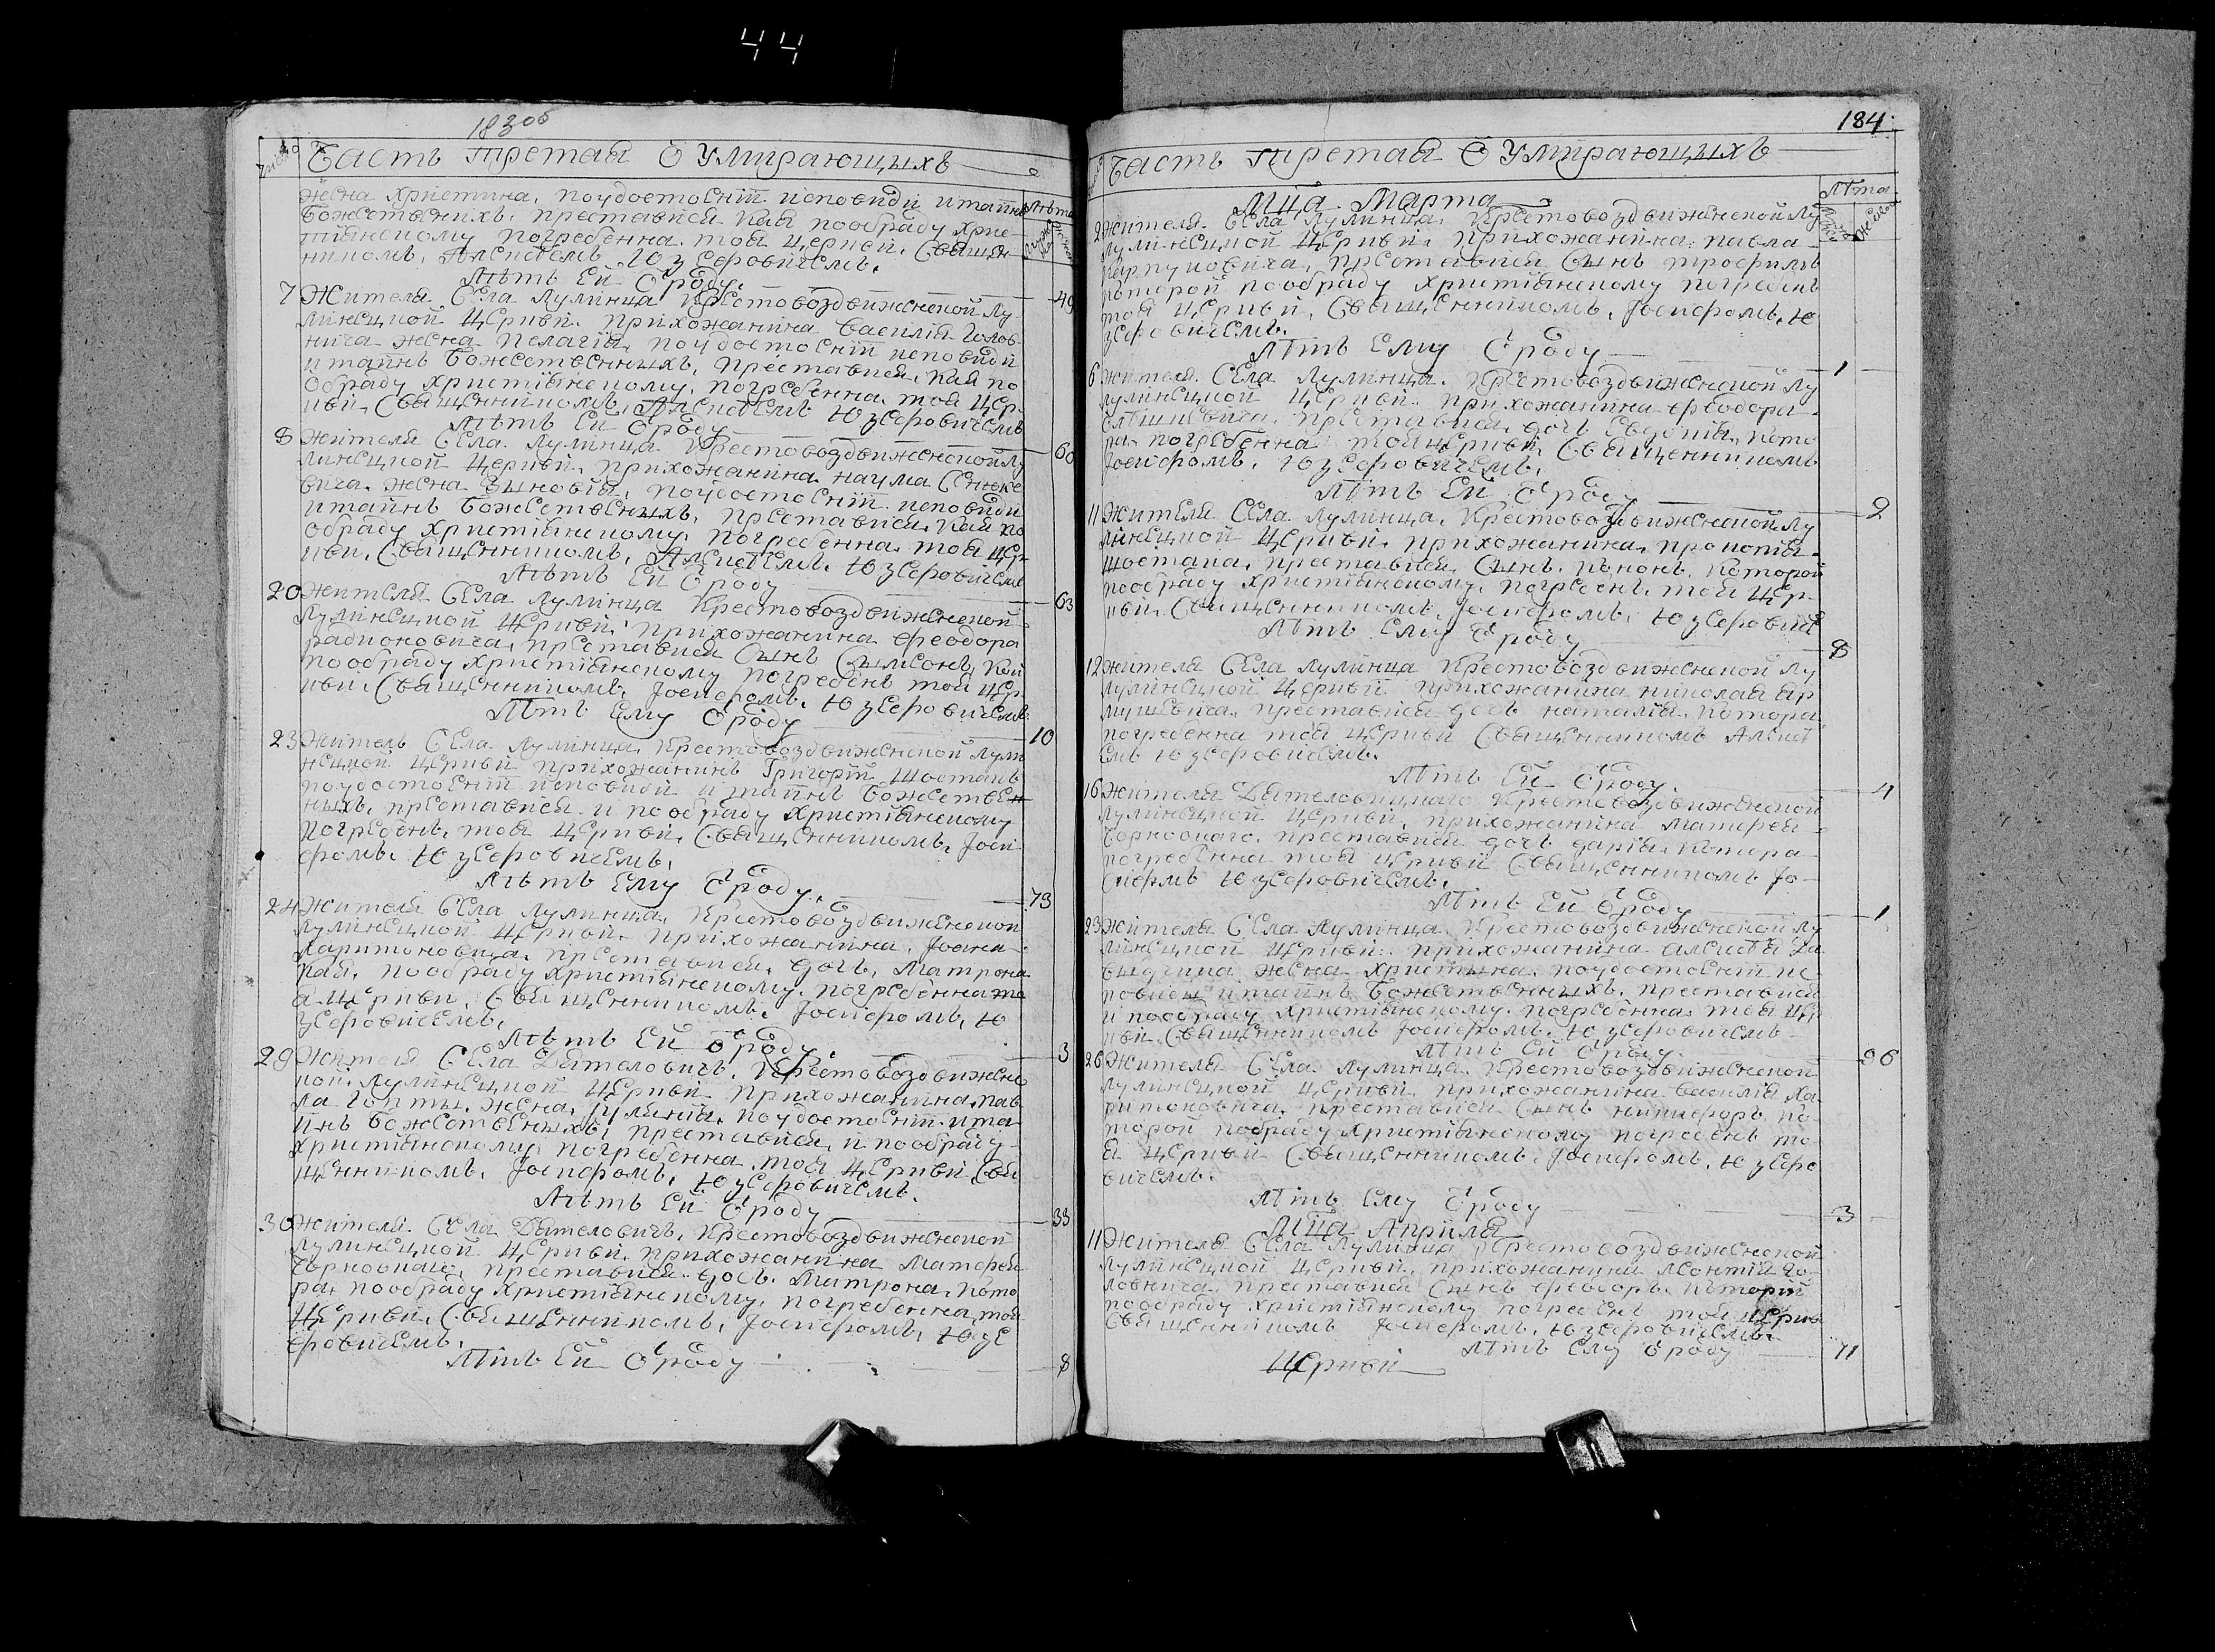 44
18305
Число
Часть третая О Умирающихъ
жена христина, поудостоєніи исповиди и таинъ
Божественихъ, преставися кая пообряду хрис-
тіянскому погребенна тоя церкви Священ
никомъ, Алексѣемъ Юзсфовичемъ.
Лѣтъ Ей Ѿроду. 49
7 Жителя Села Лулинца Крестовоздвиженской Лу
линецкой Церкви прихожанина Василія Голов
нича жена Пелагія, поудостоєніи исповиди
и таинъ Божественныхъ, преставися, кая по
обряду христіянскому, погребенна тоя Цер
кви, Священникомъ, Алексѣемъ Юзефовичемъ
Лѣтъ Ей Ѿроду 60
8 Жителя Села Лулинца Крестовоздвиженской Лу
линецкой Церкви, прихожанина наума Сенке
вича жена Зиновія, поудостоєніи исповиди
и таинъ Божественныхъ, преставися, кая по
обряду христіянскому, погребенна тоя Цер
кви, Священникомъ, Алексѣемъ, Юзефовичемъ
Лѣтъ Ей Ѿроду 63
20 Жителя Села Лулинца Крестовоздвиженской
Лулинецкой Церкви, прихожанина Феодора
радионовича, преставися Сынъ Сымеонъ, кой
пообряду христіянскому погребенъ тоя Цер
кви, Священникомъ, Іосифомъ, Юзефовичемъ
Лѣтъ Ему Ѿроду 10
23 Житель Села Лулинца, Крестовоздвиженской Лули
нецкой церкви прихожанинъ Григорій Шостакъ
поудостоєніи исповиди и таинъ Божествен
ныхъ, преставися и пообряду христіянскому
погребенъ, тоя Церкви, Священникомъ, Іоси
фомъ, Юзефовичемъ,
Лѣтъ Ему Ѿроду. 73
24 Жителя Села Лулинца, Крестовоздвиженской
Лулинецкой Церкви, прихожанина, Іоана
Харитоновича, преставися, дочъ, Матрона
кая, пообряду христіянскому, погребенна то
я Церкви, Священникомъ, Іосифомъ, Ю
зефовичемъ,
Лѣтъ Ей Ѿроду. 3
29 Жителя Села Дятеловичъ, Крестовоздвиженс
кой Лулинецкой Церкви прихожанина, пав
ла жена, Іулянія, поудостоєніи и та
инъ Божественыхъ, преставися, и пообряду
христіянскому, погребенна, тоя Церкви, Свя
щенникомъ, Іосифомъ, Юзефовичемъ.
Лѣтъ Ей Ѿроду 33
30 Жителя Села Дятеловичъ, Крестовоздвиженской
Лулинецкой Церкви, прихожанина Матфея
Чорноокаго, преставися дочъ Матрона, кото
рая пообряду христіянскому, погребенна, тоя
Церкви, Священникомъ, Іосифомъ, Юзе
фовичемъ,
Лѣтъ Ей Ѿроду 8
184
Часть третая О Умирающихъ
Лѣта
Мца Марта
2 Жителя Села Лулинца, Крестовоздвиженской Лу
лулинецкой Церкви, прихожанина павла
карпуковича, преставися Сынъ трофимъ
которой пообряду христіянскому погребенъ
тоя Церкви, Священникомъ, Іосифомъ, Ю
зефовичемъ.
Лѣтъ Ему Ѿроду 1
6 жителя Села Лулинца, Крестовоздвиженской Лу
лулинецкой Церкви прихожанина феодора
преставися дочъ Евдокія, кото
рая погребенна тоя Церкви Священникомъ
Іосифомъ, Юзефовичемъ,
Лѣтъ Ей Ѿроду 2
11 Жителя Села Лулинца, Крестовоздвиженской Лу
линецкой Церкви, прихожанина, прокопія
шостака, преставися, Сынъ, которой
пообряду христіянскому, погребенъ тоя Цер
кви, Священникомъ Іосифомъ, Юзефовиче
Лѣтъ Ему Ѿроду 8
12 жителя Села Лулинца Крестовоздвиженской Лу
лулинецкой Церкви прихожанина николая Яр
мушевича, преставися дочъ наталія, котора
погребена тоя церкви Священникомъ Алексѣ
емъ Юзефовичемъ.
Лѣтъ Ей Ѿроду. 4
16 Жителя Дятеловицкаго Крестовоздвиженской
Лулинецкой Церкви, прихожанина Матфея
Чорноокаго, преставися дочъ дарія, котора
погребенна тоя церкви Священникомъ Іо
сифомъ Юзефовичемъ,
Лѣтъ Ей Ѿроду 1
23 Жителя Села Лулинца, Крестовоздвиженской Лу
линецкой Церкви прихожанина алексѣя Да
выдчика жена христина, поудостоєніи ис
повиди и таинъ Божественныхъ, преставися
и пообряду христіянскому погребенна тоя Цер
кви Священникомъ Іосифомъ Юзефовичемъ
Лѣтъ Ей Ѿроду. 36
26 Жителя Села Лулинца, Крестовоздвиженской
Лулинецкой Церкви, прихожанина Василія Ха
ритоновича, преставися Сынъ никифоръ ко
торой пообряду христіянскому погребенъ то
я церкви Священникомъ Іосифомъ, Юзефо
вичемъ.
Лѣтъ Ему Ѿроду 3
Мца Априля
11 Жителя Села Лулинца, Крестовоздвиженской
Лулинецкой Церкви, прихожанина леонтія Го
ловнича преставися Сынъ феодоръ, которій
пообряду христіянскому погребенъ тоя церкви
Священникомъ Іосифомъ, Юзефовичемъ
Лѣтъ Ему Ѿроду 11
Церкви